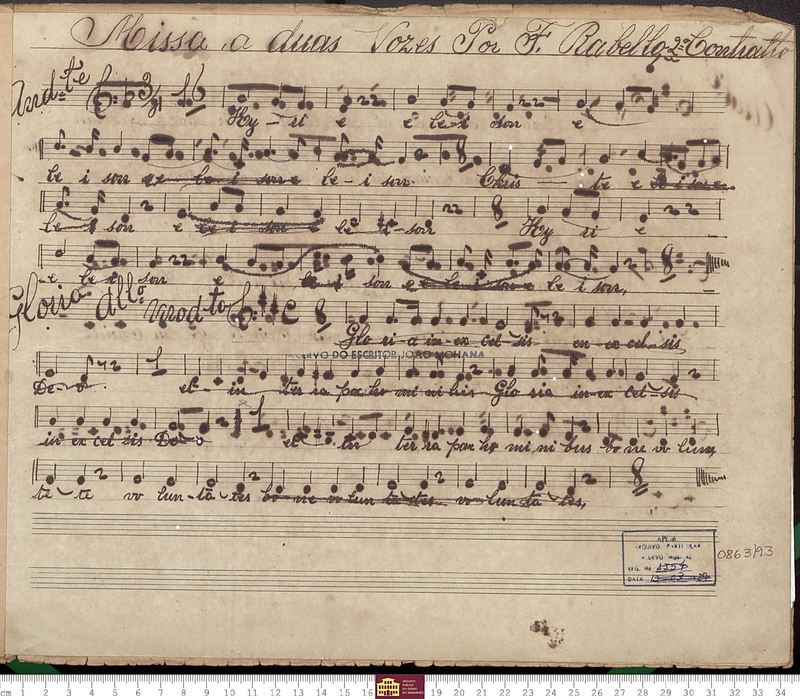 Missa a duas Vozes Por F. Rabello 2º Contralto
And.te 3/4 16
Ky - ri e e le - i son e
le i son e le i son e le - i son. Chris - te e le i son e
le i son e le i son e le i son Ky ri e
e le i son e le i son e e le i son e le i son,
Gloria All.º Modto C 8
Glo ri - a in - ex cel - sis en - ex cel - sis
ACERVO DO ESCRITOR JOÃO MOHANA
De - o. et - in ter ra pax ho mi ni bus Glo ria in - ex cel - sis
in ex cel sis De - o et in ter ra pax ho mi ni bus bo ne vo lun
ta - te vo lun - ta - tes bo ne vo lun ta tes vo lun ta tes,
APEM
ARQUIVO PARTITURAS
ACERVO MUSICAL
REG. No
DATA
0863/93
cm 1 2 3 4 5 6 7 8 9 10 11 12 13 14 15 16
ARQUIVO PÚBLICO DO ESTADO DO MARANHÃO
19 20 21 22 23 24 25 26 27 28 29 30 31 32 33 34